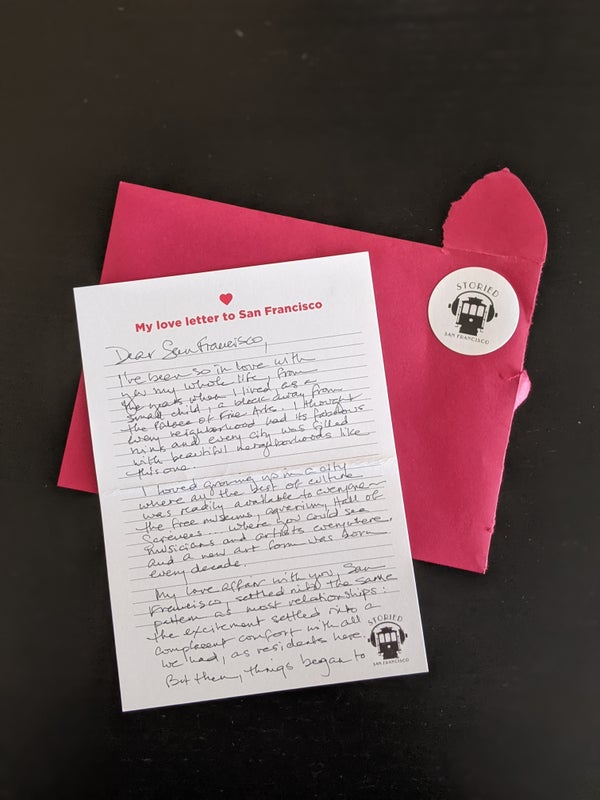 STORIED
SAN FRANCISCO
My love letter to San Francisco
Dear San Francisco,
I've been so in love with
you my whole life, from
the years when I lived as a
small child, a block away from
the Palace of Fine Arts. I thought
every neighborhood had its fabulous
ruins and every city was filled
with beautiful neighborhoods like
this one.
I loved growing up in a city
where all the best of culture
was readily available to everyone –
the free museums, aquarium, Hall of
Sciences.... where you could see
musicians and artists everywhere,
and a new art form was born
every decade.
My love affair with you, San
Francisco, settled into the same
pattern as most relationships:
the excitement settled into a
complacent comfort with all
we had, as residents here.
But then, things began to
STORIED
SAN FRANCISCO